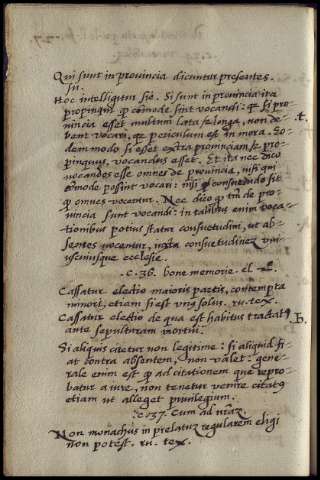 Qui sunt in prouincia dicuntur presentes.
in.
Hoc intelligitur sic. Si sunt in prouincia ita
propinqui qp cõmode sint vocandi. qp si pro
uincia esset multum lata se longa, non de-
bent vocari, qe periculum est in mora. Eo-
dem modo si esset extra prouinciam se pro
pinquus, vocandus esset. Et ita nec dico
uocandos esse omnes de prouincia, nisi qui
cõmode possint vocari: nisi consuetudo sit
qp omnes vocentur. Nec dico qp tñ de pro-
uincia sunt vocandi: in talibus enim voca-
tionibus potius statur consuetudini, ut ab-
sentes uocentur, iuxta consuetudinez vni
uscuiusque ecclesie.
.c. 36. bone memorie. el. 2.
Cassatur electio maioris partis, contempta
minori, etiam si est vnus solus. ru. tex.
Cassatur electio de qua est habitus tractatus
ante sepulturam mortui.
B.
Si aliquis citetur non legitime: si aliquid fi-
at contra absentem, non valet: gene-
rale enim est qp ad citationem que repro-
batur a iure, non tenetur venire citatus
etiam ut alleget priuilegium.
.c. 37. Cum ad nr̃az.
Non monachus in prelatuz regularem eligi
non potest. ru. tex.